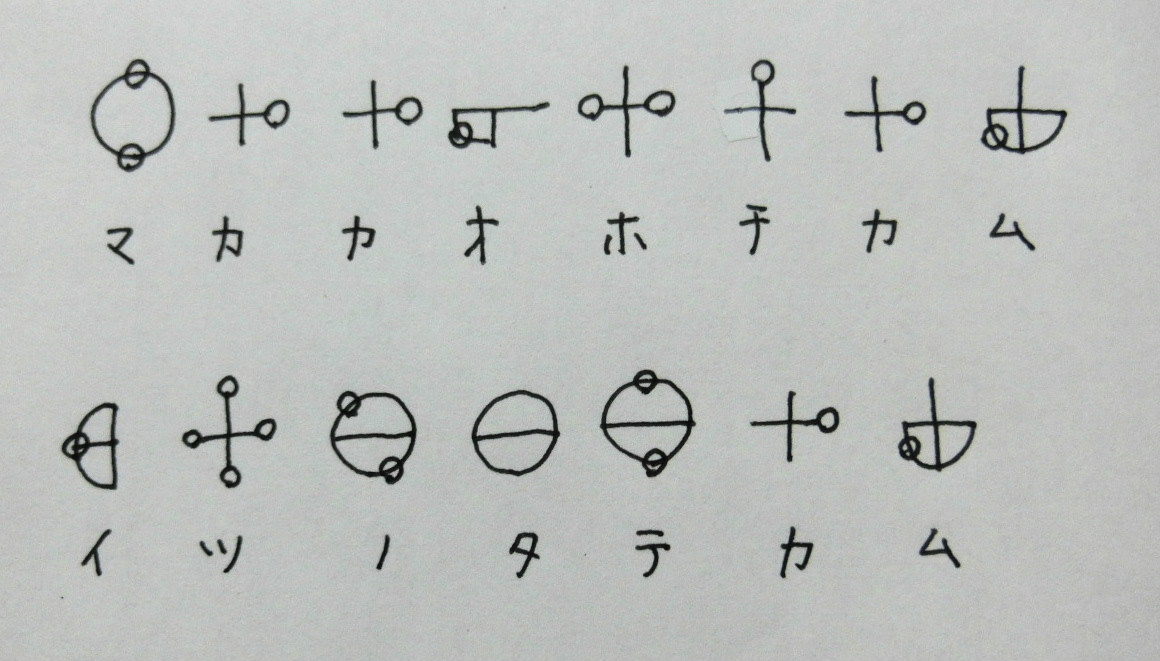 マカカオホチカム
イツノタテカム